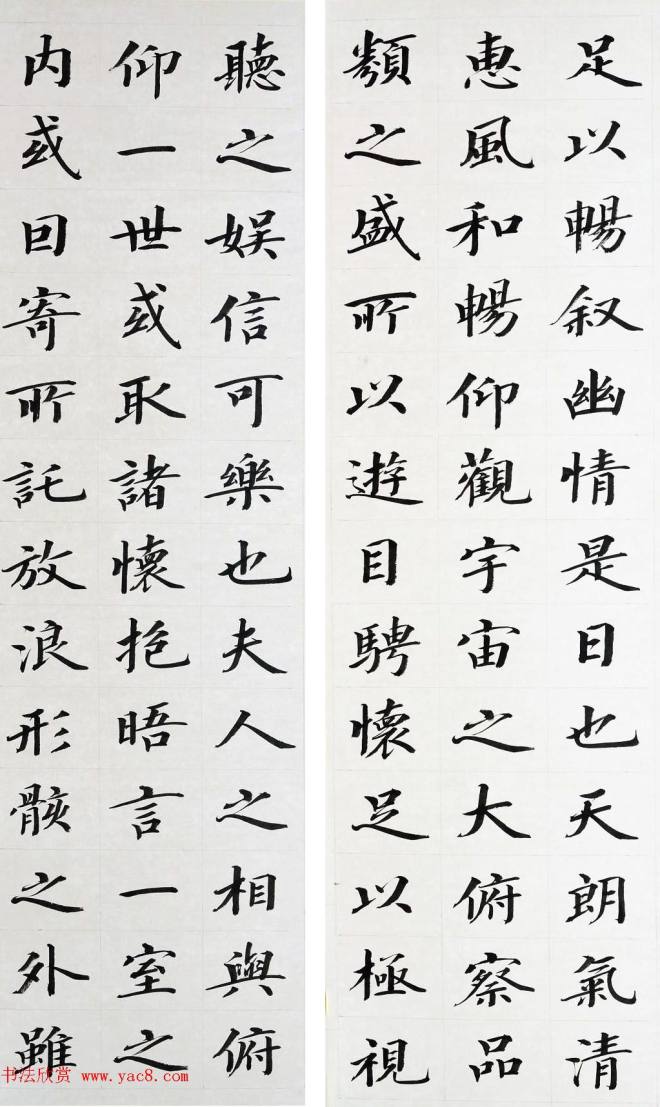 足以暢叙幽情是日也天朗氣清
惠風和暢仰觀宇宙之大俯察品
類之盛所以遊目騁懷足以極視
聽之娱信可樂也夫人之相與俯
仰一世或取諸懷抱晤言一室之
内或因寄所託放浪形骸之外雖
书法欣赏 www.yac8.com